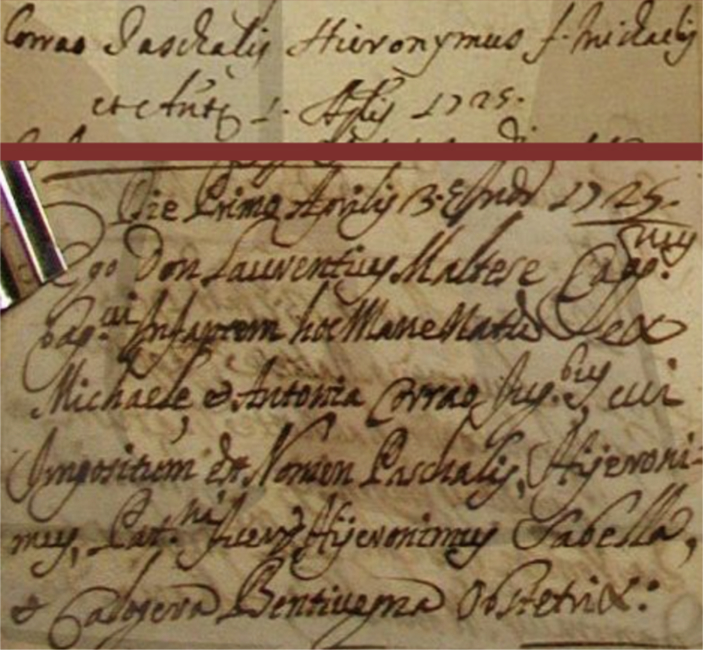 Corrao Paschalis Hieronymus f. Michaelis
et Antᵉ 1. Aplis 1725.
Die Primo Aprilis 3. Ind. 1725.
Ego Don Laurentius Maltese Cappⁿᵘˢ
bapᵗᵛⁱ Infantem hoc Mane Natũ Ex
Michaele, & Antonia Corrao Jugᵇᵘˢ, cui
Impositum est Nomen Paschalis, Hijeroni-
mus, Patⁿⁱ fuerẽ Hijeronimus Sabella,
& Calogera Bentiuegna Obstetrix.